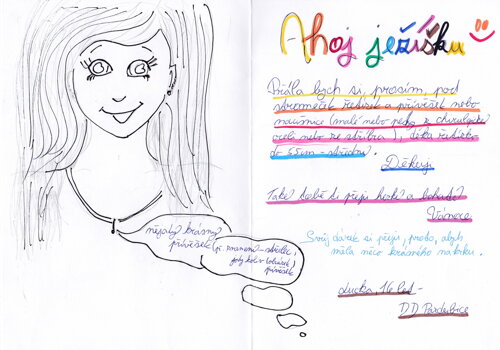 Ahoj ježíšku
Přála bych si, prosím, pod
stromeček řetízek a přívěšek nebo
náušnice (malé nebo pecky z chirurgické
oceli nebo ze stříbra), délka řetízku
do 55cm - stříbro.
Děkuji
Také tobě ti přeji hezké a bohaté
Vánoce
Svůj dárek si přeji, proto, abych
měla něco krásného na krku.
Lucka, 16 let -
DD Pardubice
nějaký krásný
přívěšek (př. znamení - střelec,
přívěšek